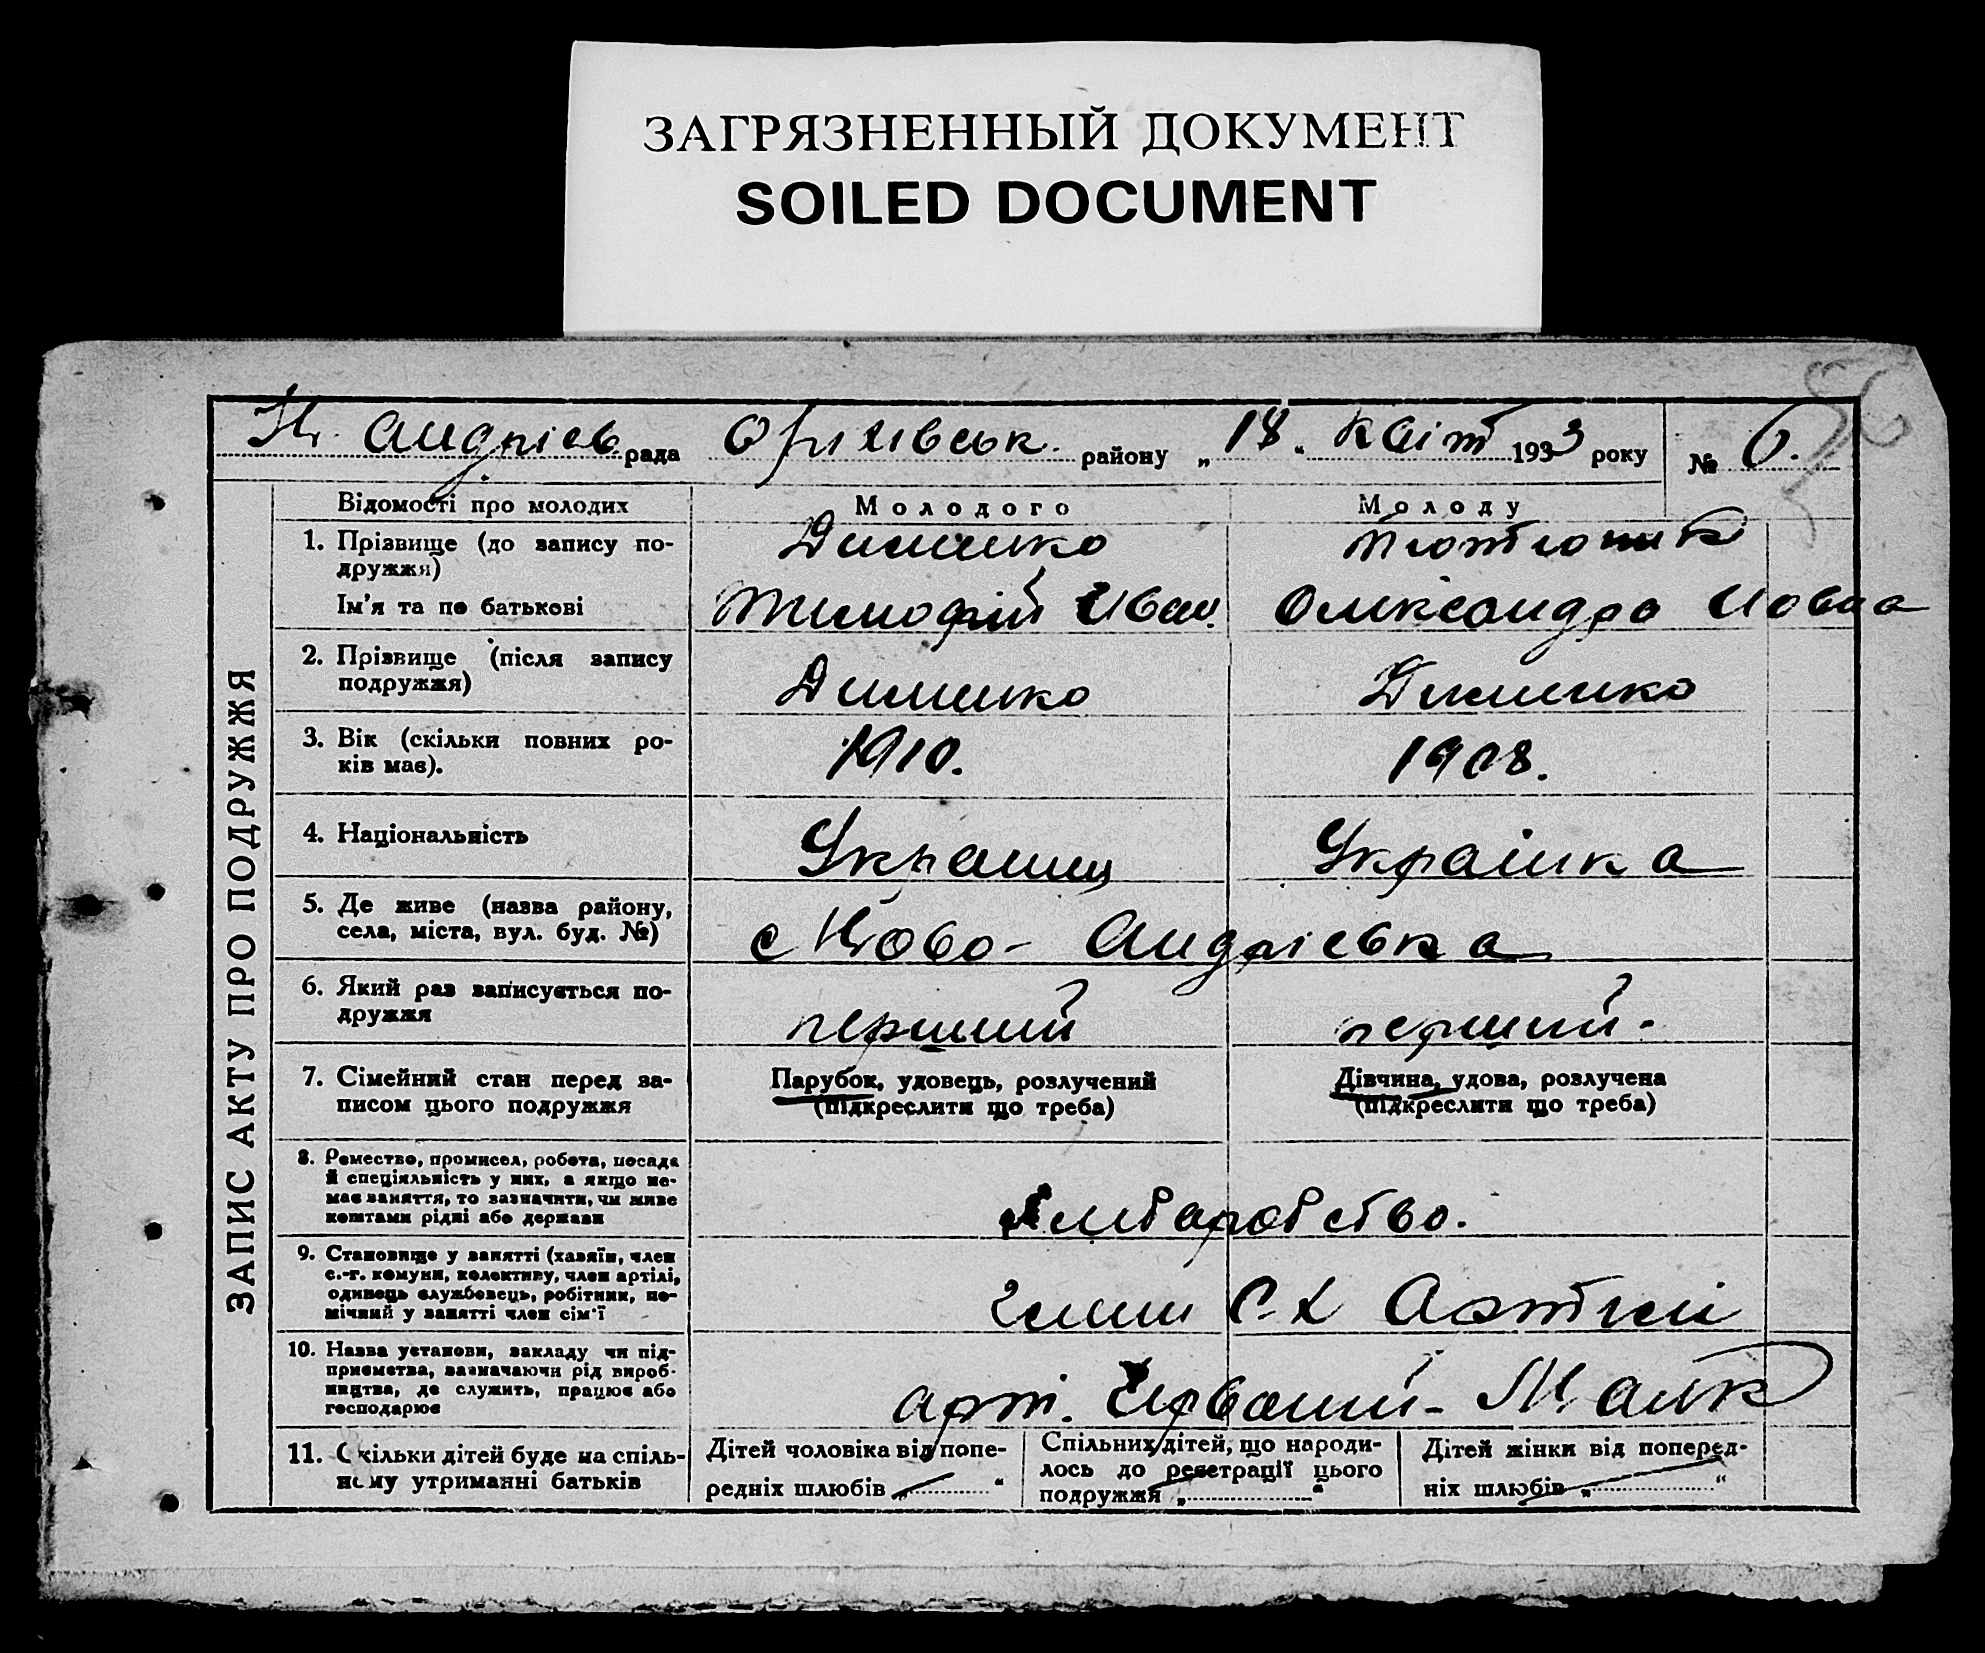 ЗАГРЯЗНЕННЫЙ ДОКУМЕНТ
SOILED DOCUMENT
56
Н. Андріев. рада Оріхівськ. району „18“ Квіт 1933 року № 6.
ЗАПИС АКТУ ПРО ПОДРУЖЖЯ
Відомості про молодих Молодого Молоду
1. Прізвище (до запису по-
дружжя) Дименко Тютюник
Ім'я та по батькові Тимофій Іван. Олександра
2. Прізвище (після запису
подружжя) Дименко Дименко
3. Вік (скільки повних ро-
ків має). 1910. 1908.
4. Національність Українец Українка
5. Де живе (назва району,
села, міста, вул. буд. №) с Ново-Андріевка
6. Який раз записується по-
дружжя перший перший.
7. Сімейний стан перед за-
писом цього подружжя
Парубок, удовець, розлучений
(підкреслити що треба)
Дівчина, удова, розлучена
(підкреслити що треба)
8. Ремество, промисел, робота, посада
й спеціяльність у них, а якщо не-
має заняття, то зазначити, чи живе
коштами рідні або держави
Хліборобство.
9. Становище у занятті (хазяїн, член
с.-г. комуни, колективу, член артілі,
одинець службовець, робітник, по-
мічний у занятті член сім'ї
Члени С.Х Артілі
10. Назва установи, закладу чи під-
приємства, зазначаючи рід вироб-
ництва, де служить, працює або
господарює
арт. Червоний-Маяк
11. Скільки дітей буде на спіль-
ному утриманні батьків
Дітей чоловіка від попе-
редніх шлюбів „ “
Спільних дітей, що народи-
лось до реєстрації цього
подружжя „ “
Дітей жінки від поперед-
ніх шлюбів „ “